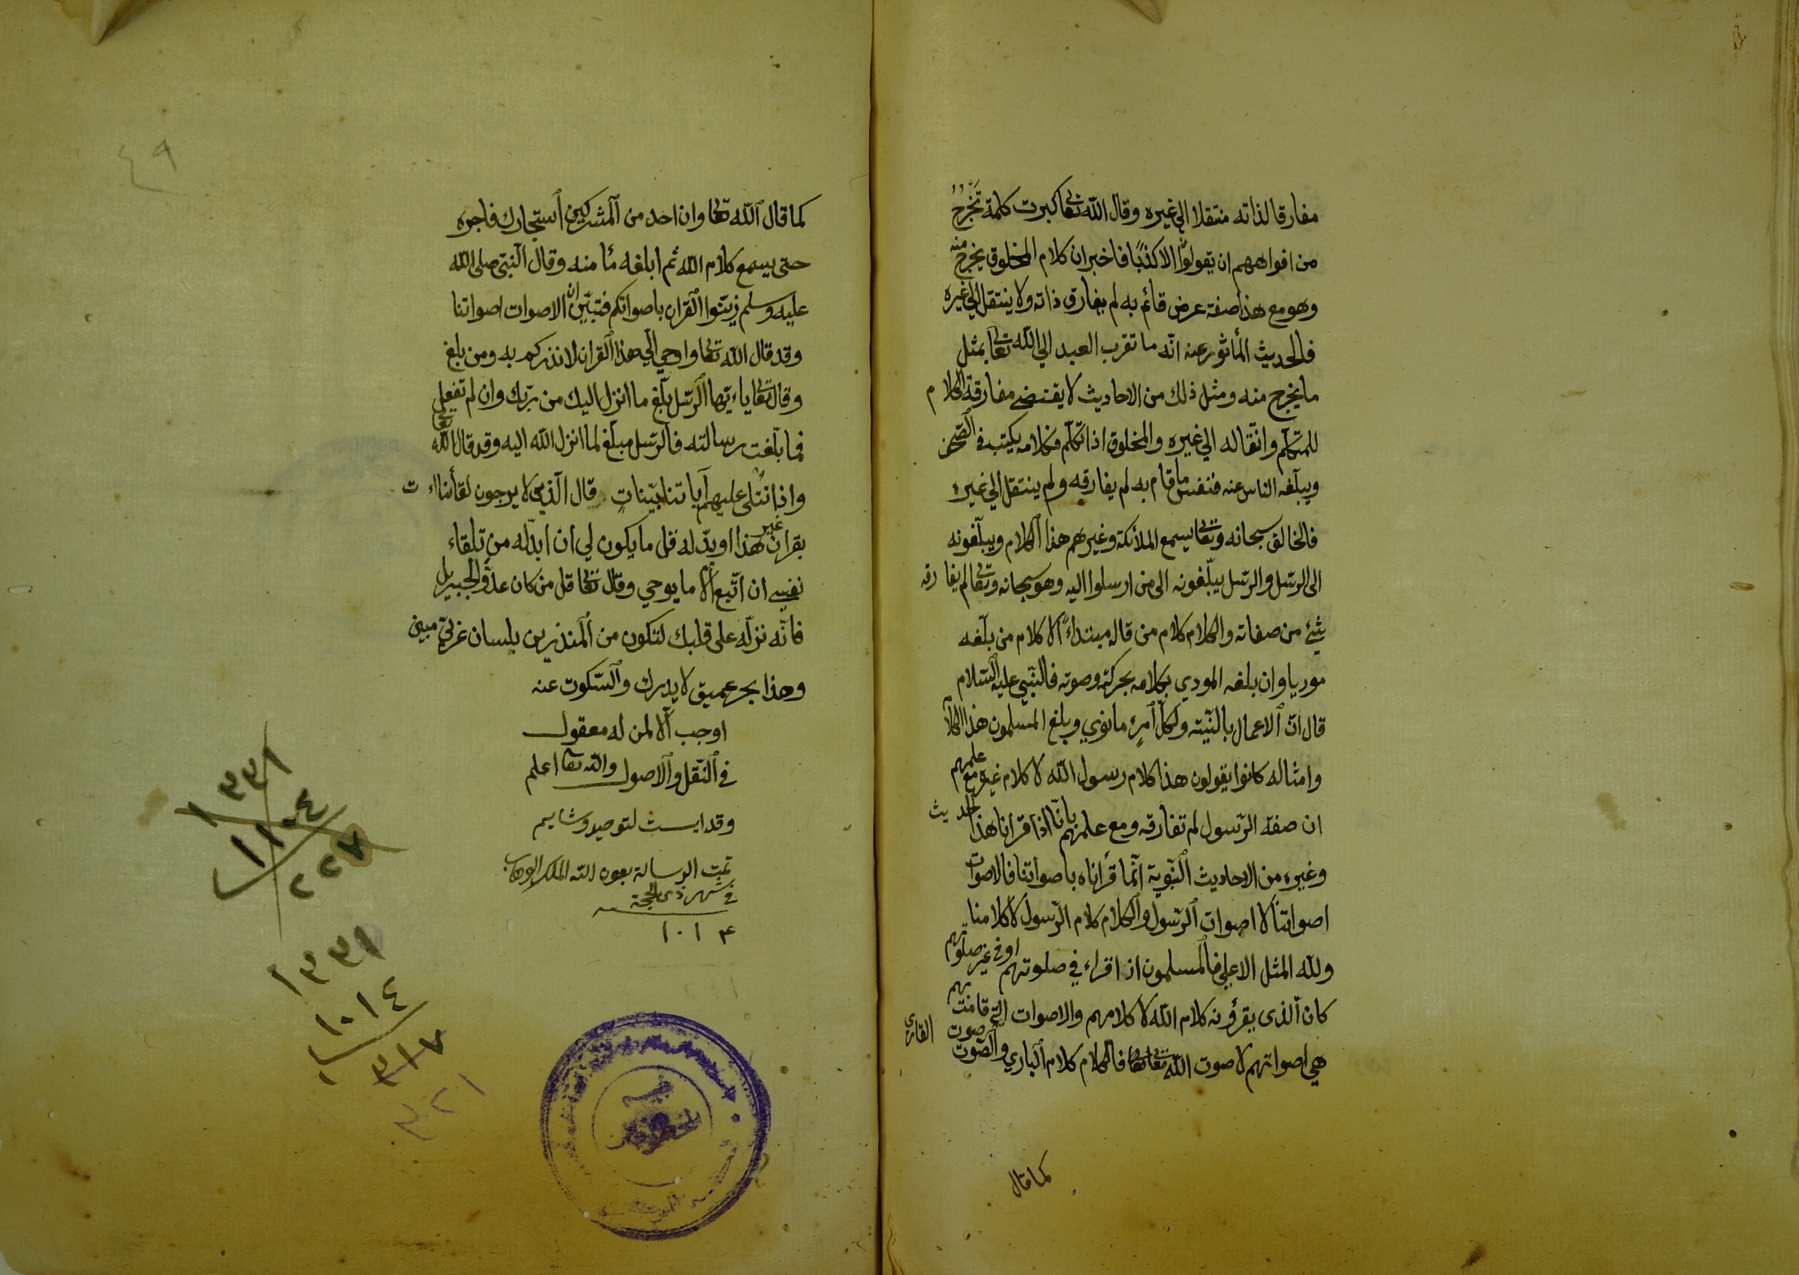 مفارقا لذاته منتقلا الي غيره وقال الله تعا كبرت كلمة تَخْرُجُ
من افواههم ان يقولوا الا كذبًا فاخبر ان كلام المخلوق يخرج منه
وهو مع هذا صفة عرض قائم به لم يفارق ذاته ولا ينتقل الي غيره
فالحديث المأثور عنه انّه ما تقرب العبد الي الله تعا بمثل
ما يخرج منه ومثل ذلك من الاحاديث لا يقتضي مفارقة الكلام
للمتكلّم وانتقاله الي غيره والمخلوق اذا تكلّم فكلامه يكتب في الصّحف
ويبلّغه الناس عنه فنفس ما قام به لم يفارقه ولم ينتقل الي غيره
فالخالق سبحانه وتعا يسمع الملائكة وغيرهم هذا الكلام ويبلّغونه
الى الرّسل والرسل يبلّغونه الى من ارسلوا اليه وهو سبحانه وتعا لم يفارقه
شئ من صفاته والكلام كلام من قاله مبتداءً لا كلام من بلّغه
موريا وان بلغه المودي بكلامه بحركته وصوته فالنّبيّ عليه السّلام
قال انّ الاعمال بالنّيّة ولكلّ امرئٍ ما نوي وبلغ المسلمون هذا الكلام
وامثاله كانوا يقولون هذا كلام رسول الله لا كلام غيره مع علمهم
ان صفة الرّسول لم تفارقه ومع علمهم بانّا اذا قرانا هذا الحديث
وغيره من الاحاديث النّبويّة انّما قرأناه باصواتنا فالاصوات
اصواتنا لا اصوات الرّسول والكلام كلام الرّسول لا كلامنا
ولله المثل الاعلي فالمسلمون اذا قراء في صلوتهم او في غير صلوتهم
كان الذي يقرؤنه كلام الله لا كلامهم والاصوات التي قامت بهم
هي اصواتهم لا صوت الله تعا فالكلام كلام الباري والصّوت صوت القاري
كما قال
٤٩
كما قال الله تعا وان احد من المشركين استجارك فاجره
حتى يسمع كلام الله ثم ابلغه مأمنه وقال النّبيّ صلى الله
عليه وسلم زيّنوا القران باصواتكم فتبيّن انّ الاصوات اصواتنا
وقد قال الله تعا واوحي الي هذا القران لانذركم به ومن بلغ
وقال تعا ياءيّها الرّسل بلّغ ما انزل اليك من ربّك وان لم تفعل
فما بلّغت رسالته فالرّسل مبلّغ لما انزل الله اليه وقد قال الله تعا
واذا تتلى عليهم آياتنا بيّنات قال الّذين لا يرجون لقائنا ات
بقران غير هذا او بدّله قل ما يكون لي ان ابدّله من تلقاء
نفسي ان اتّبع الّا ما يوحي وقال تعا قل من كان عدوّا لجبريل
فانّه نزّله على قلبك لتكون من المنذرين بلسان عربيّ مبين
وهذا بحر عميق لا يدرك والسّكوت عنه
اوجب الّا لمن له معقول
في النّقل والاصول والله تعا اعلم
تمت الرسالة بعون الله الملك الوهاب
في شهر ذي الحجة
١٠١٤
١٣٣١
١١٠٤
٢٢٧
١٣٣١
١٠١٤
٣١٧